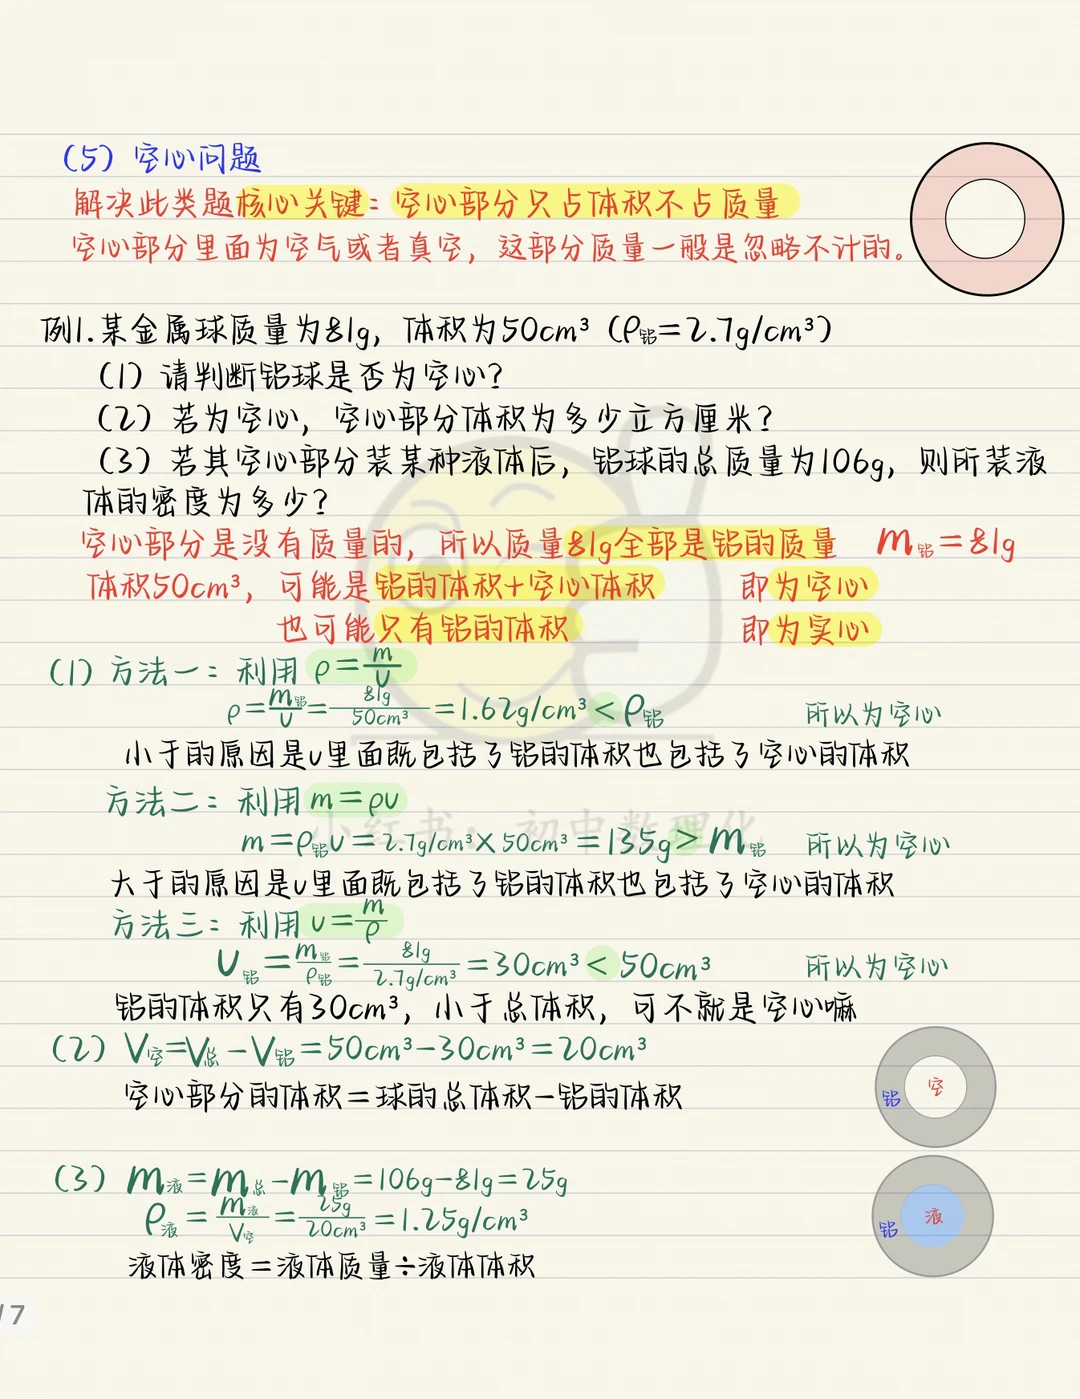 (5) 空心问题
解决此类题核心关键：空心部分只占体积不占质量
空心部分里面为空气或者真空，这部分质量一般是忽略不计的。
例1.某金属球质量为81g，体积为50cm³（ρ铝=2.7g/cm³）
(1) 请判断铝球是否为空心？
(2) 若为空心，空心部分体积为多少立方厘米？
(3) 若其空心部分装某种液体后，铝球的总质量为106g，则所装液
体的密度为多少？
空心部分是没有质量的，所以质量81g全部是铝的质量 m铝=81g
体积50cm³，可能是铝的体积+空心体积 即为空心
也可能只有铝的体积 即为实心
(1) 方法一：利用 ρ=m/v
ρ=m铝/v=81g/50cm³=1.62g/cm³<ρ铝 所以为空心
小于的原因是v里面既包括了铝的体积也包括了空心的体积
方法二：利用m=ρv
小红书：初中数理化
m=ρ铝v=2.7g/cm³×50cm³=135g>m铝 所以为空心
大于的原因是v里面既包括了铝的体积也包括了空心的体积
方法三：利用v=m/ρ
v铝=m铝/ρ铝=81g/2.7g/cm³=30cm³<50cm³ 所以为空心
铝的体积只有30cm³，小于总体积，可不就是空心嘛
(2) V空=V总-V铝=50cm³-30cm³=20cm³
空心部分的体积=球的总体积-铝的体积
铝 空
(3) m液=m总-m铝=106g-81g=25g
ρ液=m液/V空=25g/20cm³=1.25g/cm³
铝 液
液体密度=液体质量÷液体体积
/7